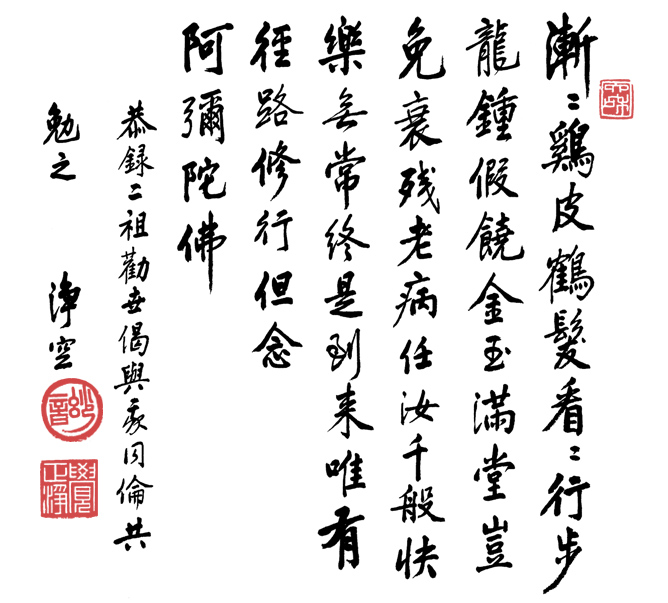 漸〻鷄皮鶴髮看〻行步
龍鍾假饒金玉滿堂豈
免衰残老病任汝千般快
樂無常終是到来唯有
徑路修行但念
阿彌陀佛
恭録二祖勸世偈與我同倫共
勉之 淨空
妙音